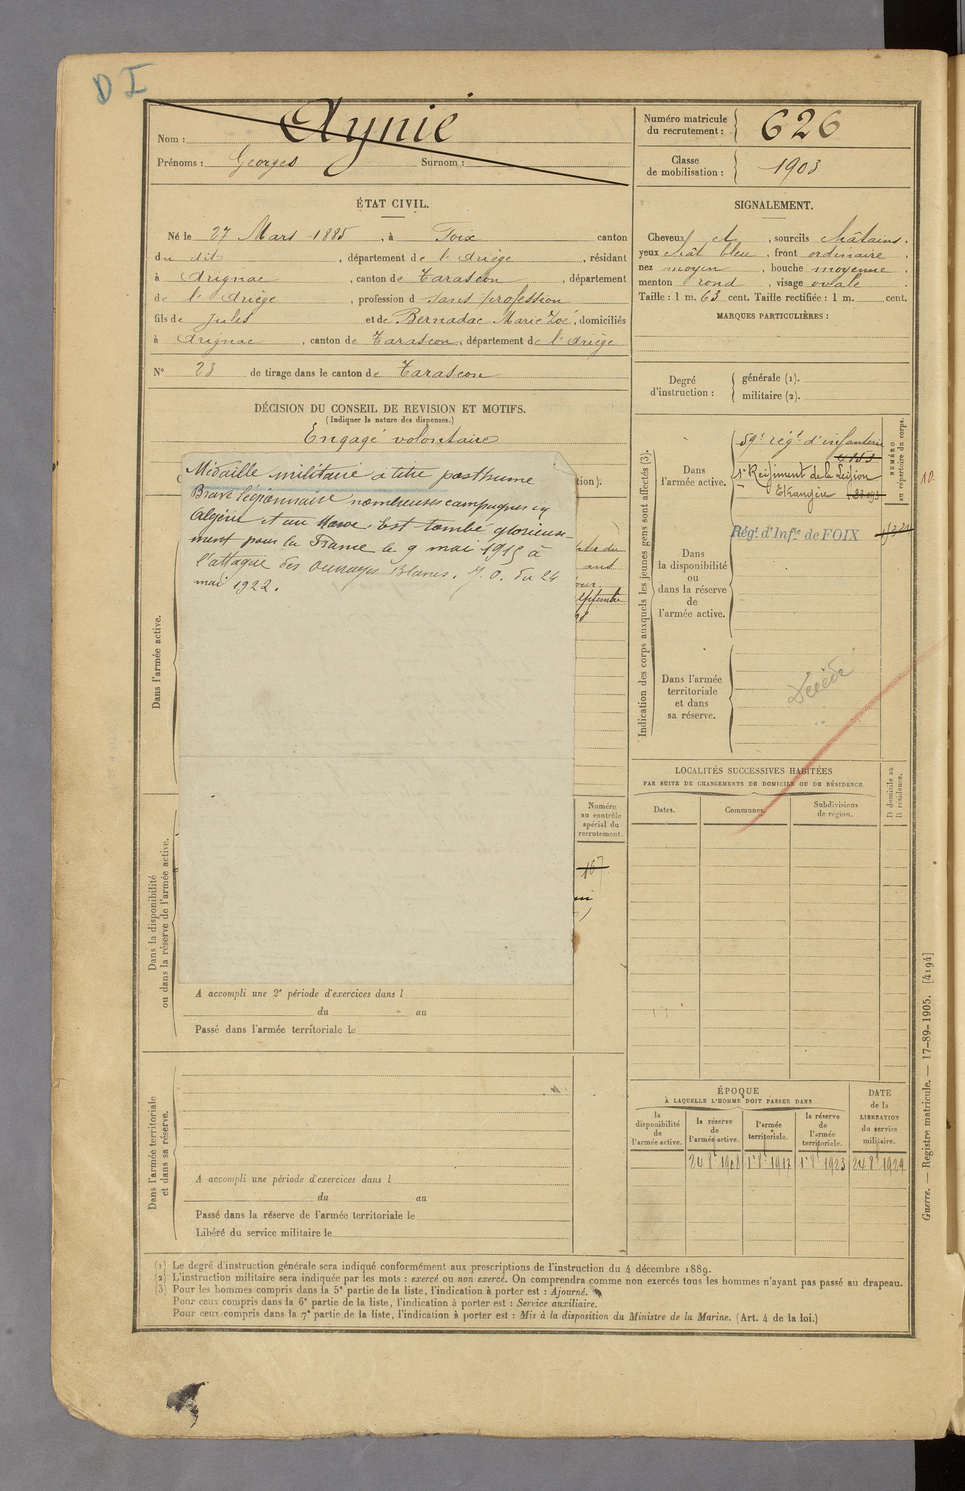 D I
Nom : Aynié
Prénoms : Georges Surnom :
Numéro matricule du recrutement : 626
Classe de mobilisation : 1903
ÉTAT CIVIL.
Né le 27 Mars 1885, à Foix canton
du dit, département de l'Ariège, résidant
à Arignac, canton de Tarascon, département
de l'Ariège, profession d sans profession
fils de Jules et de Bernadac Marie Zoé, domiciliés
à Arignac, canton de Tarascon, département de l'Ariège
N° 23 de tirage dans le canton de Tarascon
SIGNALEMENT.
Cheveux et, sourcils châtains.
yeux chât bleu, front ordinaire,
nez moyen, bouche moyenne,
menton rond, visage ovale.
Taille : 1 m. 63 cent. Taille rectifiée : 1 m. cent.
MARQUES PARTICULIÈRES :
Degré d'instruction : générale (1).
militaire (2).
DÉCISION DU CONSEIL DE REVISION ET MOTIFS.
(Indiquer la nature des dispenses.)
Engagé volontaire
Médaille militaire à titre posthume
Brave légionnaire nombreuses campagnes en
Algérie et au Maroc. Est tombé glorieuse-
ment pour la France le 9 mai 1915 à
l'attaque des Ouvrages Blancs. J. O. du 24
mai 1922.
tion).
ans
jour.
Dans l'armée active.
Dans la disponibilité
ou dans la réserve de l'armée active.
Numéro
au contrôle
spécial du
recrutement.
167
A accompli une 2e période d'exercices dans l
du au
Passé dans l'armée territoriale le
Dans l'armée territoriale
et dans sa réserve.
A accompli une période d'exercices dans l
du au
Passé dans la réserve de l'armée territoriale le
Libéré du service militaire le
Indication des corps auxquels les jeunes gens sont affectés (3).
NUMÉRO
au répertoire du corps.
Dans
l'armée active.
59e régt d'infanterie
1er Régiment de la Légion
Etrangère
10.
Régt d'Infie de FOIX
Dans
la disponibilité
ou
dans la réserve
de
l'armée active.
Dans l'armée
territoriale
et dans
sa réserve.
Décédé
LOCALITÉS SUCCESSIVES HABITÉES
PAR SUITE DE CHANGEMENTS DE DOMICILE OU DE RÉSIDENCE.
Dates.
Communes.
Subdivisions
de région.
D domicile ou
R résidence.
ÉPOQUE
À LAQUELLE L'HOMME DOIT PASSER DANS
la
disponibilité
de
l'armée active.
la réserve
de
l'armée active.
l'armée
territoriale.
la réserve
de
l'armée
territoriale.
DATE
de la
LIBÉRATION
du service
militaire.
(1) Le degré d'instruction générale sera indiqué conformément aux prescriptions de l'instruction du 4 décembre 1889.
(2) L'instruction militaire sera indiquée par les mots : exercé ou non exercé. On comprendra comme non exercés tous les hommes n'ayant pas passé au drapeau.
(3) Pour les hommes compris dans la 5e partie de la liste, l'indication à porter est : Ajourné.
Pour ceux compris dans la 6e partie de la liste, l'indication à porter est : Service auxiliaire.
Pour ceux compris dans la 7e partie de la liste, l'indication à porter est : Mis à la disposition du Ministre de la Marine. (Art. 4 de la loi.)
Guerre. — Registre matricule. — 17-89-1905. [4194]